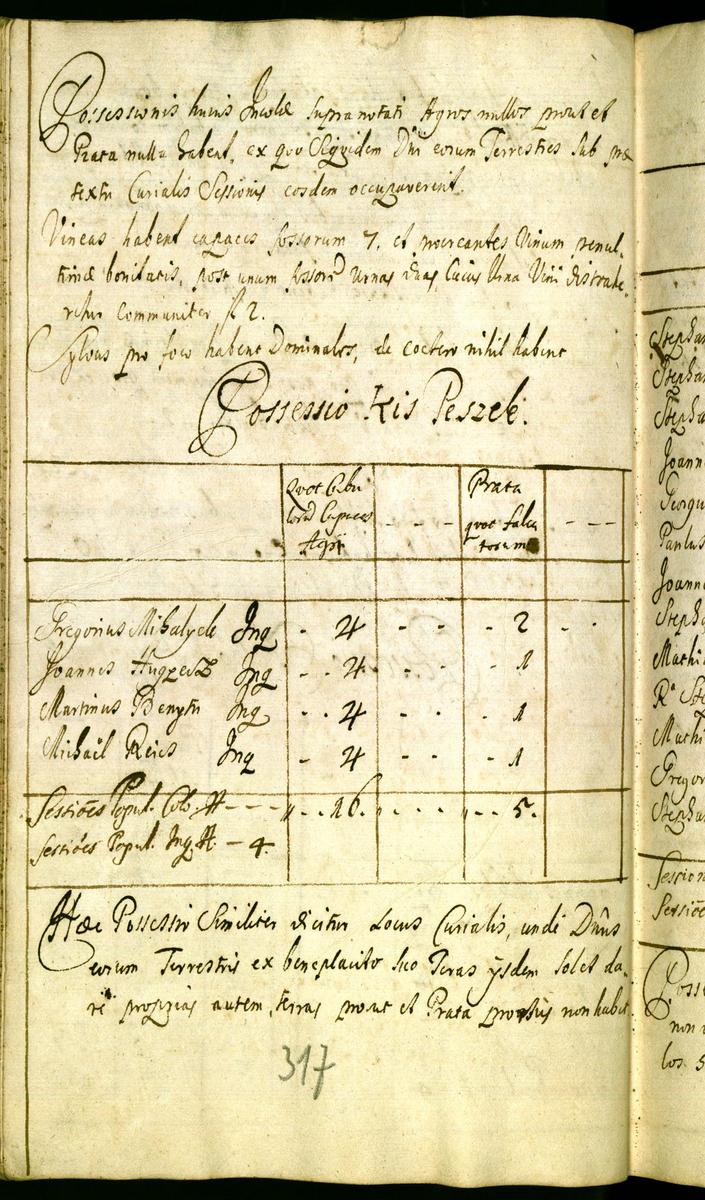 Possessionis huius Incolae supra notati Agros nullos prout et
Prata nulla habent, ex quo Siquidem Dni eorum Terrestres sub prae
textu Curialis Sessionis eosdem occupaverint.
Vineas habent capaces fossorum 7. et procreantes Vinum penul-
timae bonitatis, post unum fossorem Urnas duas, Cuius Urna Vini distrahe-
retur communiter fl 2.
Sylvas pro foco habent Dominales, de coetero nihil habent
Possessio Kis Peszek.
Quot Cubu
lorum Capaces
Agri
- - -
Prata
quot falca
torum
- - -
Gregorius Mihalyek Inq - 4 - - - 2 - -
Joannes Inq - - 4 - - - 1
Martinus Benyth Inq - - 4 - - - 1
Michaël Reics Inq - 4 - - - 1
Sessiões Popul. Col. # - - - - 16. - - - - - 5.
Sessiões Popul. Inq. #. - 4.
Haec Possessio Similiter dicitur Locus Curialis, unde Dnus
eorum Terrestris ex beneplacito suo Teras ijsdem solet da-
re proprias autem terras prout et Prata prorsus non habet.
317
Stephan
Stephan
Stepha
Joann
Georgi
Paulus
Joann
Steph
Mathi
R Ste
Mathi
Gregor
Stepha
Session
Sessiões
Poss
non
los. 5